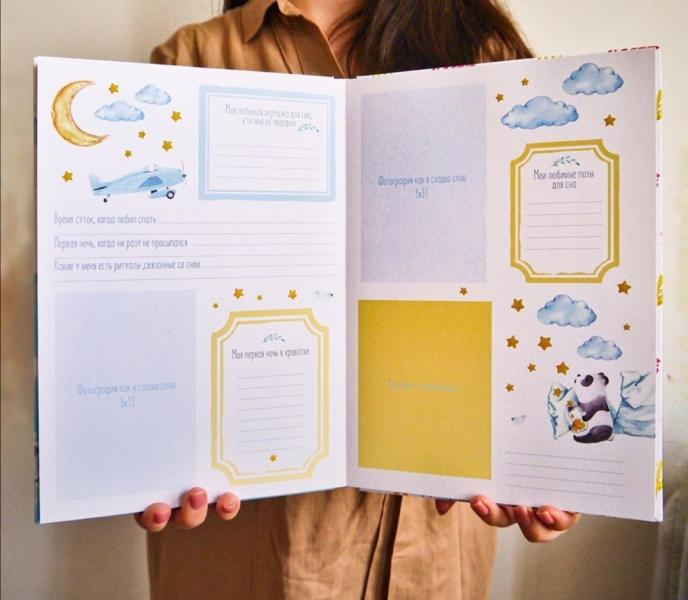 Моя любимая игрушка для сна,
кто мне её подарил
Время суток, когда любил спать
Первая ночь, когда ни разу не просыпался
Какие у меня есть ритуалы ,связанные со сном
Фотография как я сладко сплю
9х13
Моя первая ночь в кроватке
Фотография как я сладко сплю
9х13
Мои любимые позы
для сна